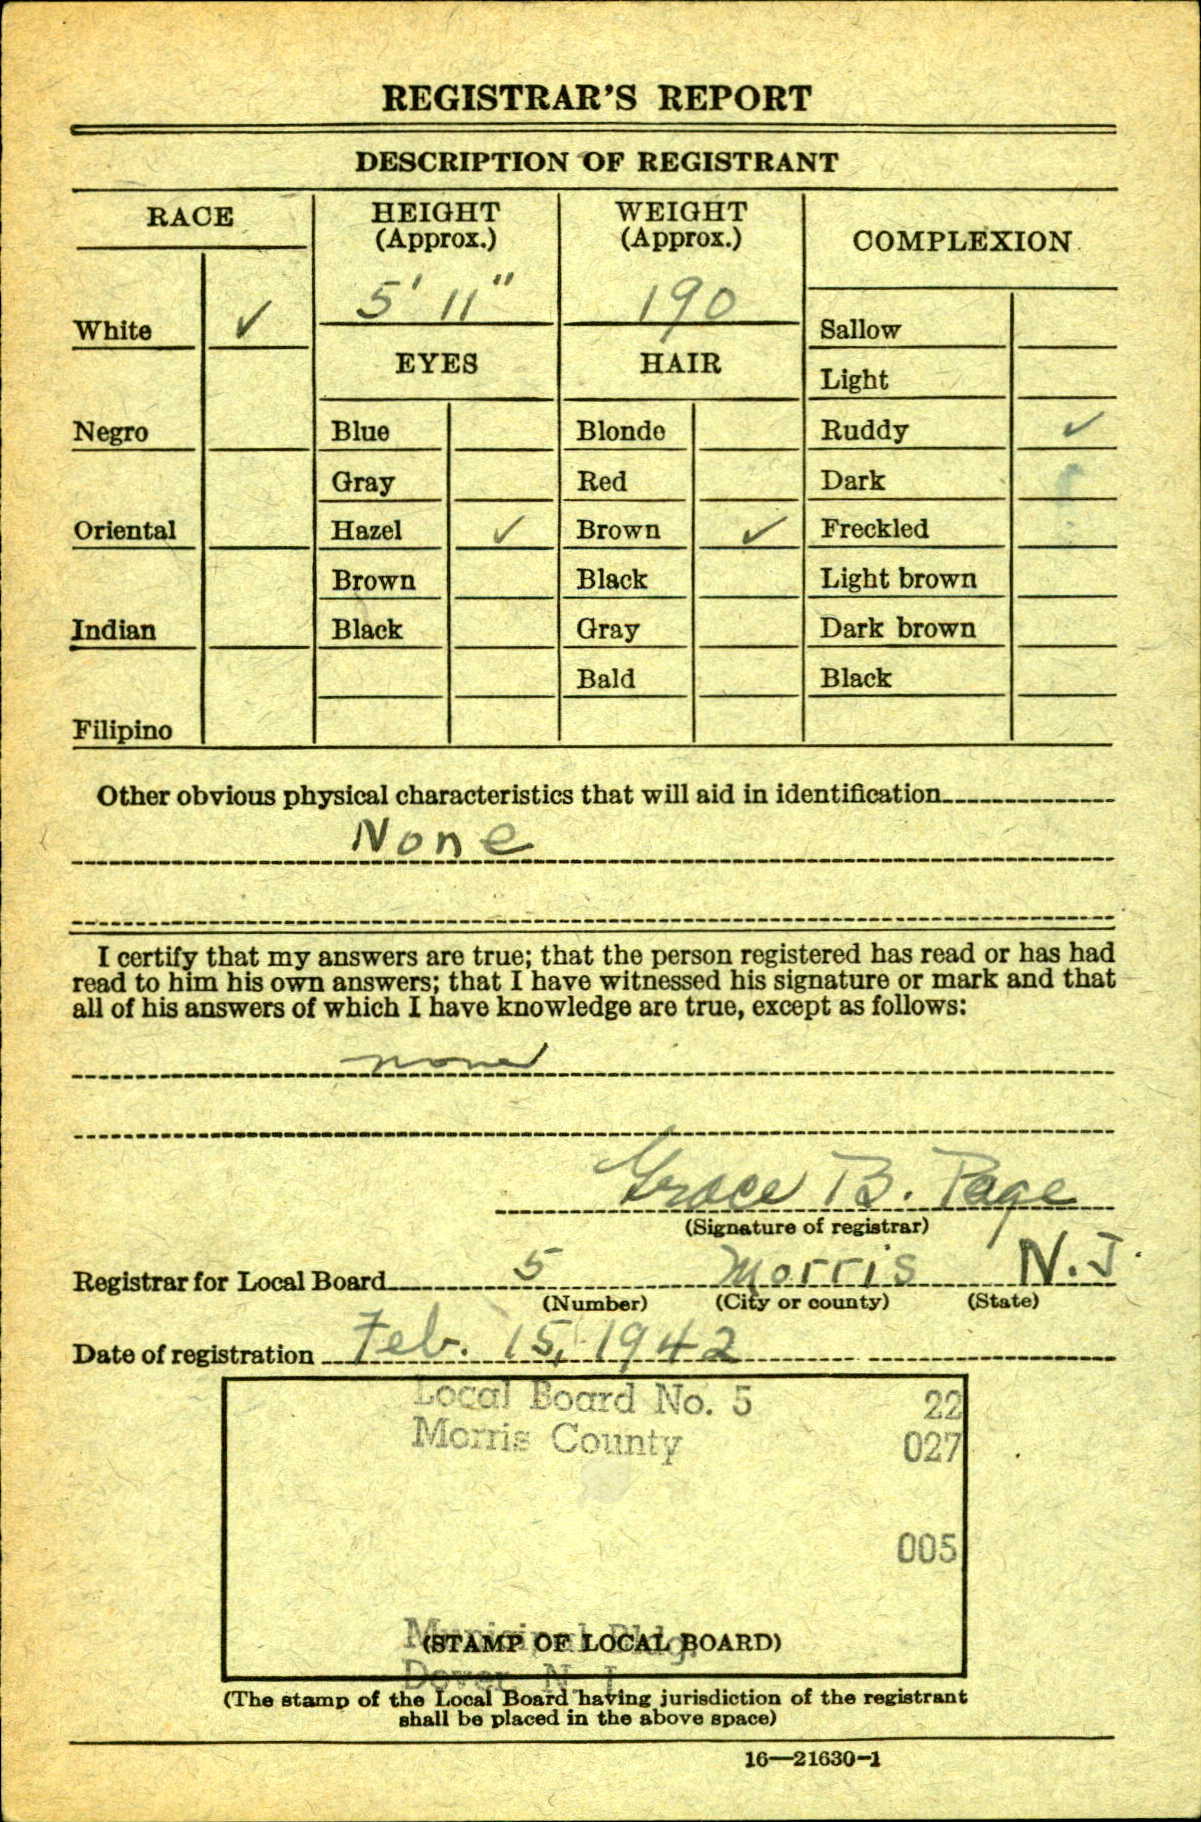 REGISTRAR'S REPORT
DESCRIPTION OF REGISTRANT
RACE
HEIGHT
(Approx.)
WEIGHT
(Approx.)
COMPLEXION
5' 11"
190
White ✓
Sallow
EYES
HAIR
Light
Negro
Blue
Blonde
Ruddy ✓
Gray
Red
Dark
Oriental
Hazel ✓
Brown ✓
Freckled
Brown
Black
Light brown
Indian
Black
Gray
Dark brown
Bald
Black
Filipino
Other obvious physical characteristics that will aid in identification
None
I certify that my answers are true; that the person registered has read or has had
read to him his own answers; that I have witnessed his signature or mark and that
all of his answers of which I have knowledge are true, except as follows:
none
Grace B. Page
(Signature of registrar)
Registrar for Local Board 5 Morris N.J.
(Number) (City or county) (State)
Date of registration Feb. 15, 1942
Local Board No. 5 22
Morris County 027
005
Municipal Bldg.
(STAMP OF LOCAL BOARD)
Dover N. J.
(The stamp of the Local Board having jurisdiction of the registrant
shall be placed in the above space)
16—21630-1